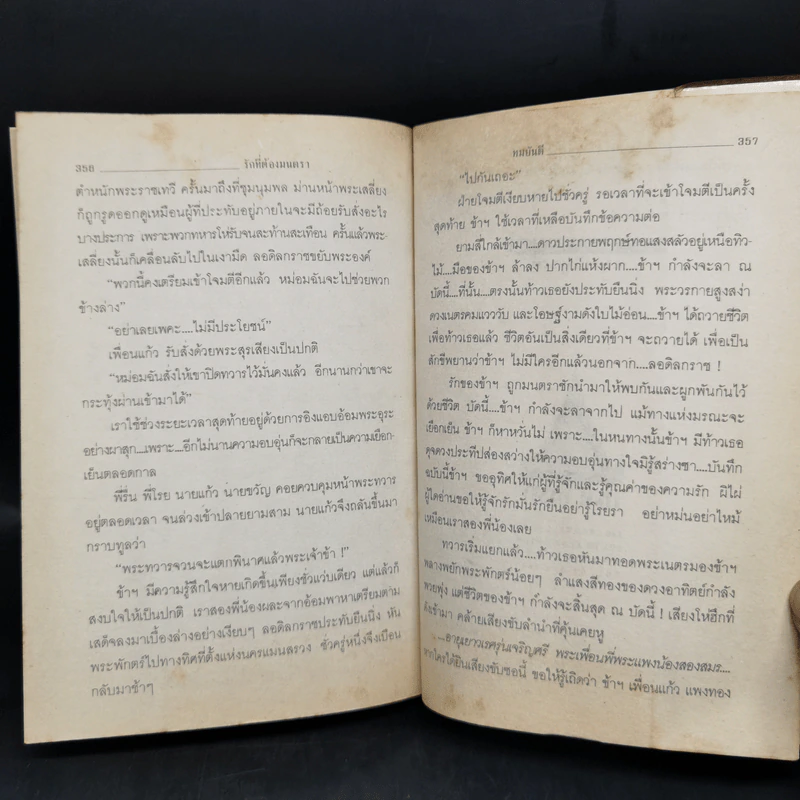 356 รักที่ต้องมนตรา
ตำหนักพระราชเทวี ครั้นมาถึงที่ชุมนุมพล ม่านหน้าพระเสลี่ยง
ก็ถูกรูดออกดูเหมือนผู้ที่ประทับอยู่ภายในจะมีถ้อยรับสั่งอะไร
บางประการ เพราะพวกทหารโห่รับจนสะท้านสะเทือน ครั้นแล้วพระ-
เสลี่ยงนั้นก็เคลื่อนลับไปในเงามืด ลอดิลกราชขยับพระองค์
“พวกนี้คงเตรียมเข้าโจมตีอีกแล้ว หม่อมฉันจะไปช่วยพวก
ข้างล่าง”
“อย่าเลยเพคะ....ไม่มีประโยชน์”
เพื่อนแก้ว รับสั่งด้วยพระสุรเสียงเป็นปกติ
“หม่อมฉันสั่งให้เขาปิดทวารไว้มั่นคงแล้ว อีกนานกว่าเขาจะ
กระทุ้งผ่านเข้ามาได้”
เราใช้ช่วงระยะเวลาสุดท้ายอยู่ด้วยการอิงแอบอ้อมพระอุระ
อย่างผาสุก....เพราะ....อีกไม่นานความอบอุ่นก็จะกลายเป็นความเยือก-
เย็นตลอดกาล
พี่รื่น พี่โรย นายแก้ว นายขวัญ คอยควบคุมหน้าพระทวาร
อยู่ตลอดเวลา จนล่วงเข้าปลายยามสาม นายแก้วจึงถลันขึ้นมา
กราบทูลว่า
“พระทวารจวนจะแตกพินาศแล้วพระเจ้าข้า !”
ข้าฯ มีความรู้สึกใจหายเกิดขึ้นเพียงชั่วแว่บเดียว แต่แล้วก็
สงบใจให้เป็นปกติ เราสองพี่น้องผละจากอ้อมพาหาเตรียมตาม
เสด็จลงมาเบื้องล่างอย่างเงียบๆ ลอดิลกราชประทับยืนนิ่ง หัน
พระพักตร์ไปทางทิศที่ตั้งแห่งนครแมนสรวง ชั่วครู่หนึ่งจึงเบือน
กลับมาช้าๆ
ทมบันดี 357
“ไปกันเถอะ”
ฝ่ายโจมตีเงียบหายไปชั่วครู่ รอเวลาที่จะเข้าโจมตีเป็นครั้ง
สุดท้าย ข้าฯ ใช้เวลาที่เหลือบันทึกข้อความต่อ
ยามสี่ใกล้เข้ามา....ดาวประกายพฤกษ์ทอแสงสลัวอยู่เหนือทิว-
ไม้....มือของข้าฯ ล้าลง ปากไก่แห้งผาก....ข้าฯ กำลังจะลา ณ
บัดนี้....ที่นั้น....ตรงนั้นท้าวเธอยังประทับยืนนิ่ง พระวรกายสูงสง่า
ดวงเนตรคมแวววับ และโอษฐ์งามดังใบไม้อ่อน....ข้าฯ ได้ถวายชีวิต
เพื่อท้าวเธอแล้ว ชีวิตอันเป็นสิ่งเดียวที่ข้าฯ จะถวายได้ เพื่อเป็น
สักขีพยานว่าข้าฯ ไม่มีใครอีกแล้วนอกจาก....ลอดิลกราช !
รักของข้าฯ ถูกมนตราชักนำมาให้พบกันและผูกพันกันไว้
ด้วยชีวิต บัดนี้....ข้าฯ กำลังจะลาจากไป แม้ทางแห่งมรณะจะ
เยือกเย็น ข้าฯ ก็หาหวั่นไม่ เพราะ....ในหนทางนั้นข้าฯ มีท้าวเธอ
ดุจดวงประทีปส่องสว่างให้ความอบอุ่นทางใจมิรู้สร่างซา....บันทึก
ฉบับนี้ข้าฯ ขออุทิศให้แก่ผู้ที่รู้จักและรู้คุณค่าของความรัก ผิไผ่
ผู้ใดอ่านขอให้รู้จักรักมั่นรักยืนอย่ารู้โรยรา อย่าหม่นอย่าไหม้
เหมือนเราสองพี่น้องเลย
ทวารเริ่มแยกแล้ว....ท้าวเธอหันมาทอดพระเนตรมองข้าฯ
พลางพยักพระพักตร์น้อยๆ ลำแสงสีทองของดวงอาทิตย์กำลัง
พวยพุ่ง แต่ชีวิตของข้าฯ กำลังจะสิ้นสุด ณ บัดนี้ ! เสียงโห่ฮึกที่
ดังเข้ามา คล้ายเสียงขับลำนำที่คุ้นเคยหู
....อายุเยาวเรศรุ่นเจริญศรี พระเพื่อนพี่พระแพงน้องสองสมร....
หากใครได้ยินเสียงขับซอนี้ ขอให้รู้เถิดว่า ข้าฯ เพื่อนแก้ว แพงทอง